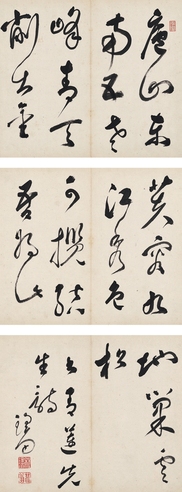 廬山東
南五老
峰青天
削出金
芙蓉九
江秀色
可攬結
吾將此
地巢雲
松
右青蓮先
生詩